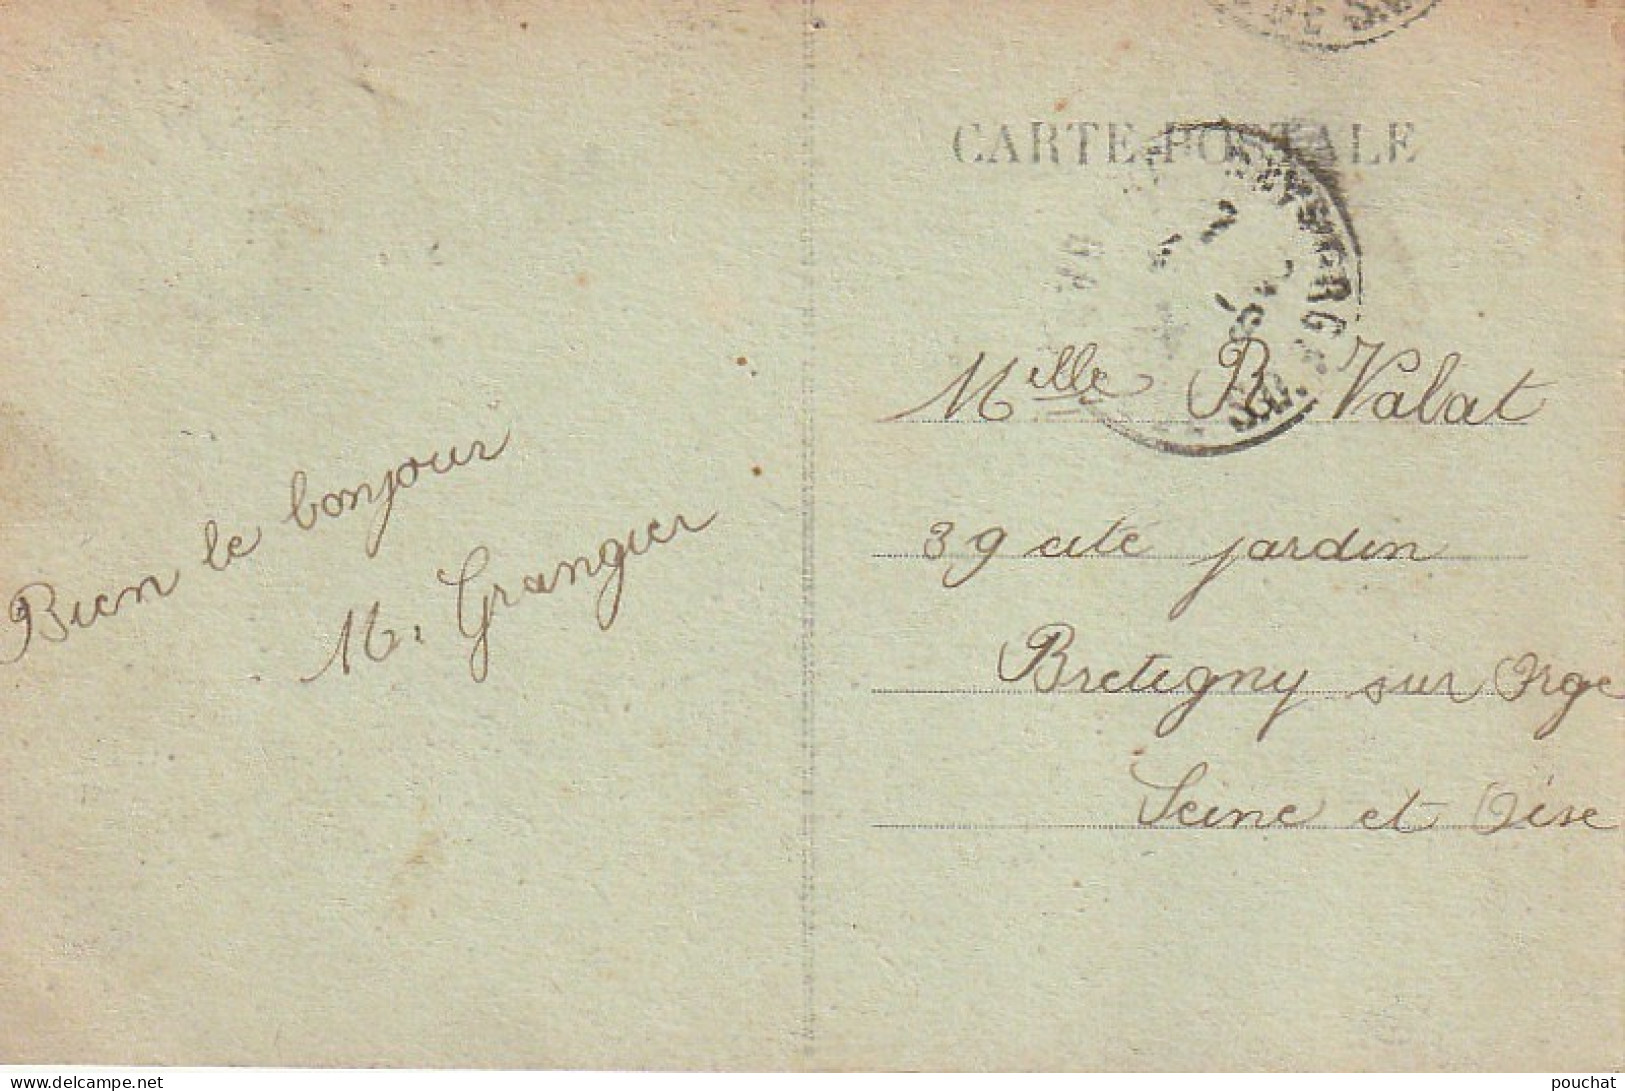 CARTE POSTALE
Bien le bonjour
M. Grangier
Melle R Valat
39 cité jardin
Bretigny sur Orge
Seine et Oise
www.delcampe.net
pouchat